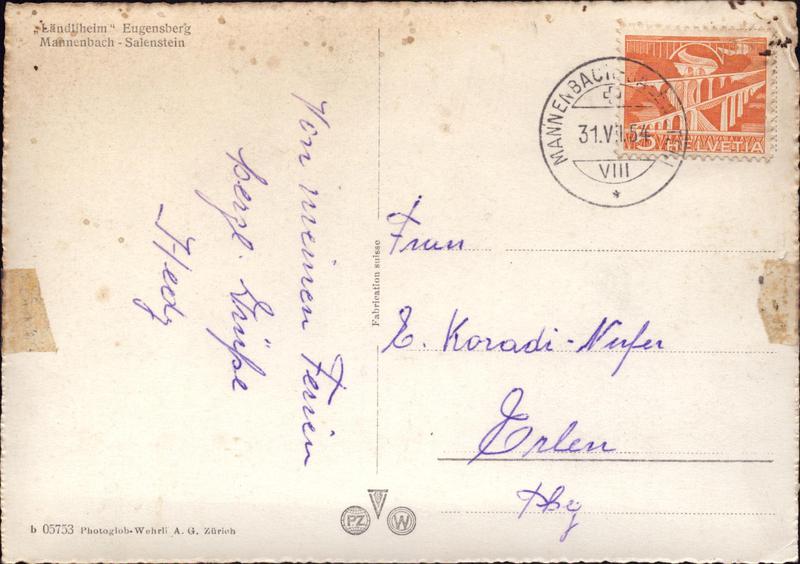 „Ländliheim" Eugensberg
Mannenbach - Salenstein
Von meinen Ferien
herzl. Grüße
Hedy
Fabrication suisse
MANNENBACH
31.VII.54
VIII
5 HELVETIA
Frau
E. Koradi-Nufer
Erlen
Thg
PZ W
b 05753 Photoglob-Wehrli A. G. Zürich